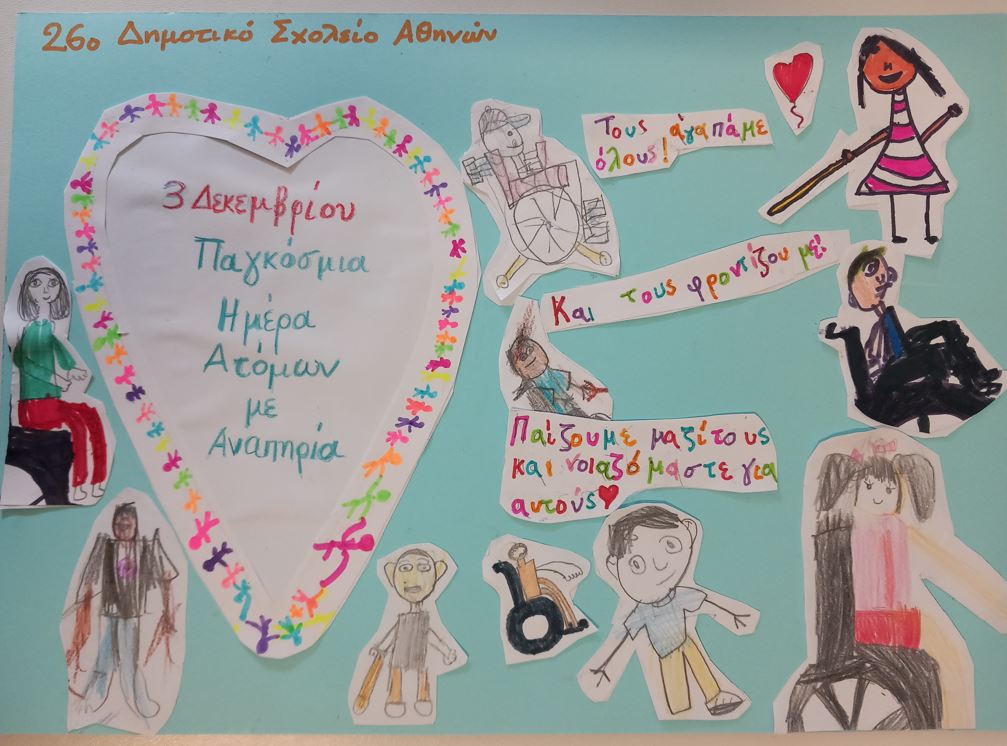 26ο Δημοτικό Σχολείο Αθηνών
3 Δεκεμβρίου
Παγκόσμια
Ημέρα
Ατόμων
με
Αναπηρία
Τους αγαπάμε
όλους!
Και τους φροντίζουμε!
Παίζουμε μαζί τους
και νοιαζόμαστε για
αυτούς